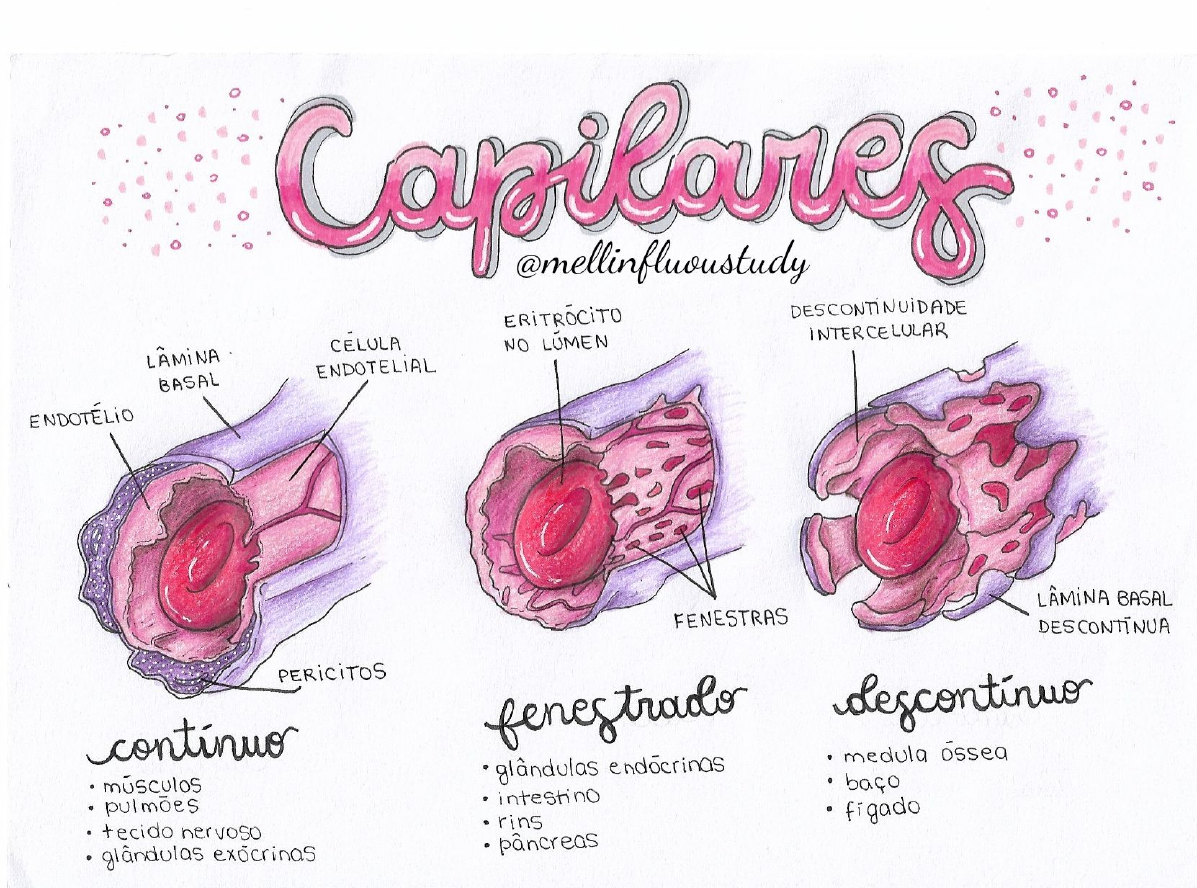 Capilares
@mellinfluoustudy
ENDOTÉLIO
LÂMINA
BASAL
CÉLULA
ENDOTELIAL
PERICITOS
contínuo
• músculos
• pulmões
• tecido nervoso
• glândulas exócrinas
ERITRÓCITO
NO LÚMEN
FENESTRAS
fenestrado
• glândulas endócrinas
• intestino
• rins
• pâncreas
DESCONTINUIDADE
INTERCELULAR
LÂMINA BASAL
DESCONTÍNUA
descontínuo
• medula óssea
• baço
• fígado